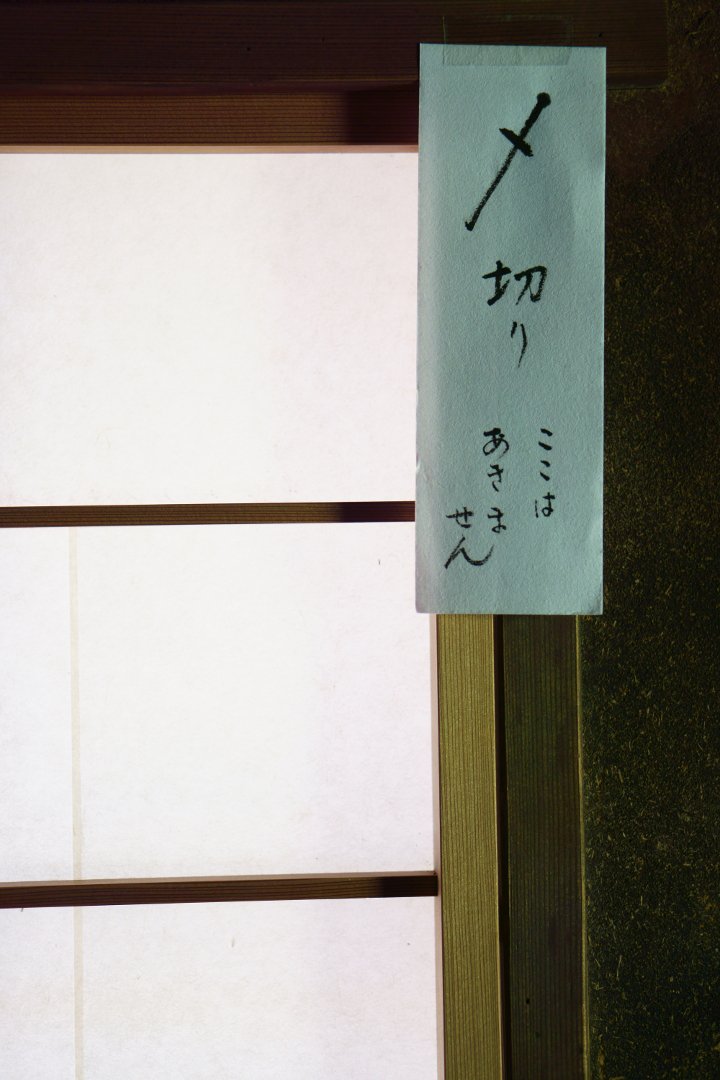 〆切り
ここは
あきま
せん